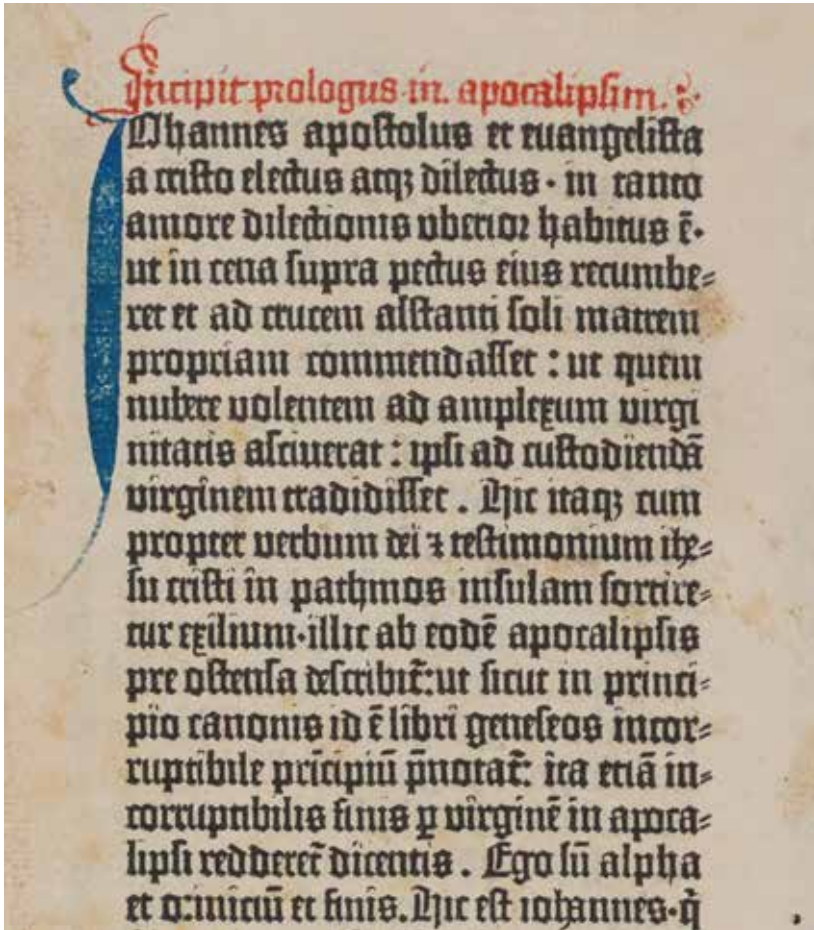 Incipit prologus in. apocalipsim.
IOhannes apostolus et euangelista
a cristo electus atqꝫ dilectus · in tanto
amore dilectionis vberior habitus ē·
ut in cena supra pectus eius recumbe-
ret et ad crucem astanti soli matrem
propriam commendasset : ut quem
nubere volentem ad amplexum virgi
nitatis asciuerat : ipsi ad custodiendā
virginem tradidisset . Hic itaqꝫ cum
propter verbum dei ⁊ testimonium ihe-
su cristi in pathmos insulam sortire-
tur exilium·illic ab eodē apocalipsis
pre ostensa describit᷑:ut sicut in princi-
pio canonis id ē libri geneseos incor-
ruptibile prīcipiū p̄notat᷑: ita etiā in-
corruptibilis finis ꝑ virginē in apoca-
lipsi redderet᷑ dicentis . Ego sū alpha
et o:iniciū et finis. Hic est iohannes·q̄